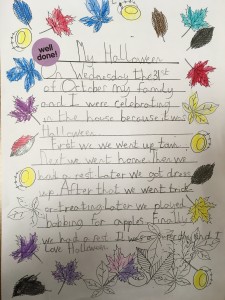 well
done!
My Halloween
On Wednesday the 31st
of October my family
and I were celebrating
in the house because it was
Halloween.
First we we went up
Next we went home. Then we
had a rest. Later we got dress
up. After that we went trick
or treating. Later we played
bobbing for apples. Finally
we had a rest. It was a day and I
love Halloween.